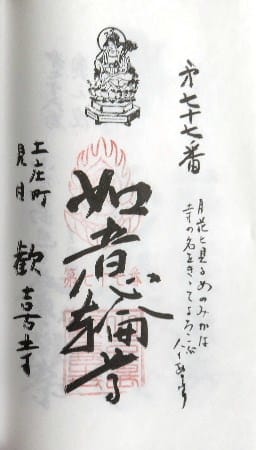 第七十七番
月花と見るめのみかは
寺の名をきゝてよろこふ
如意輪寺
土庄町
見目
歓喜寺